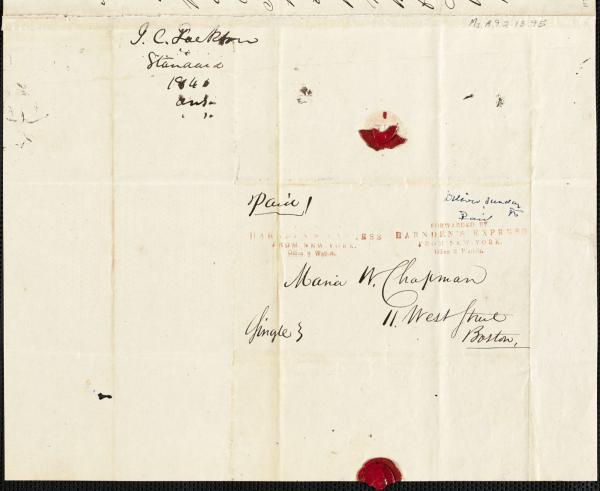 Ms. A.9.2.13.95
J. C. Jackson
Standard
1840
ans.
Paid
Deliver Sunday
Paid
HARNDEN'S EXPRESS
FROM NEW-YORK.
Office 3 Wall-st.
FORWARDED BY
HARNDEN'S EXPRESS
FROM NEW-YORK.
Office 3 Wall-st.
Maria W. Chapman
11. West Street
Boston,
Single